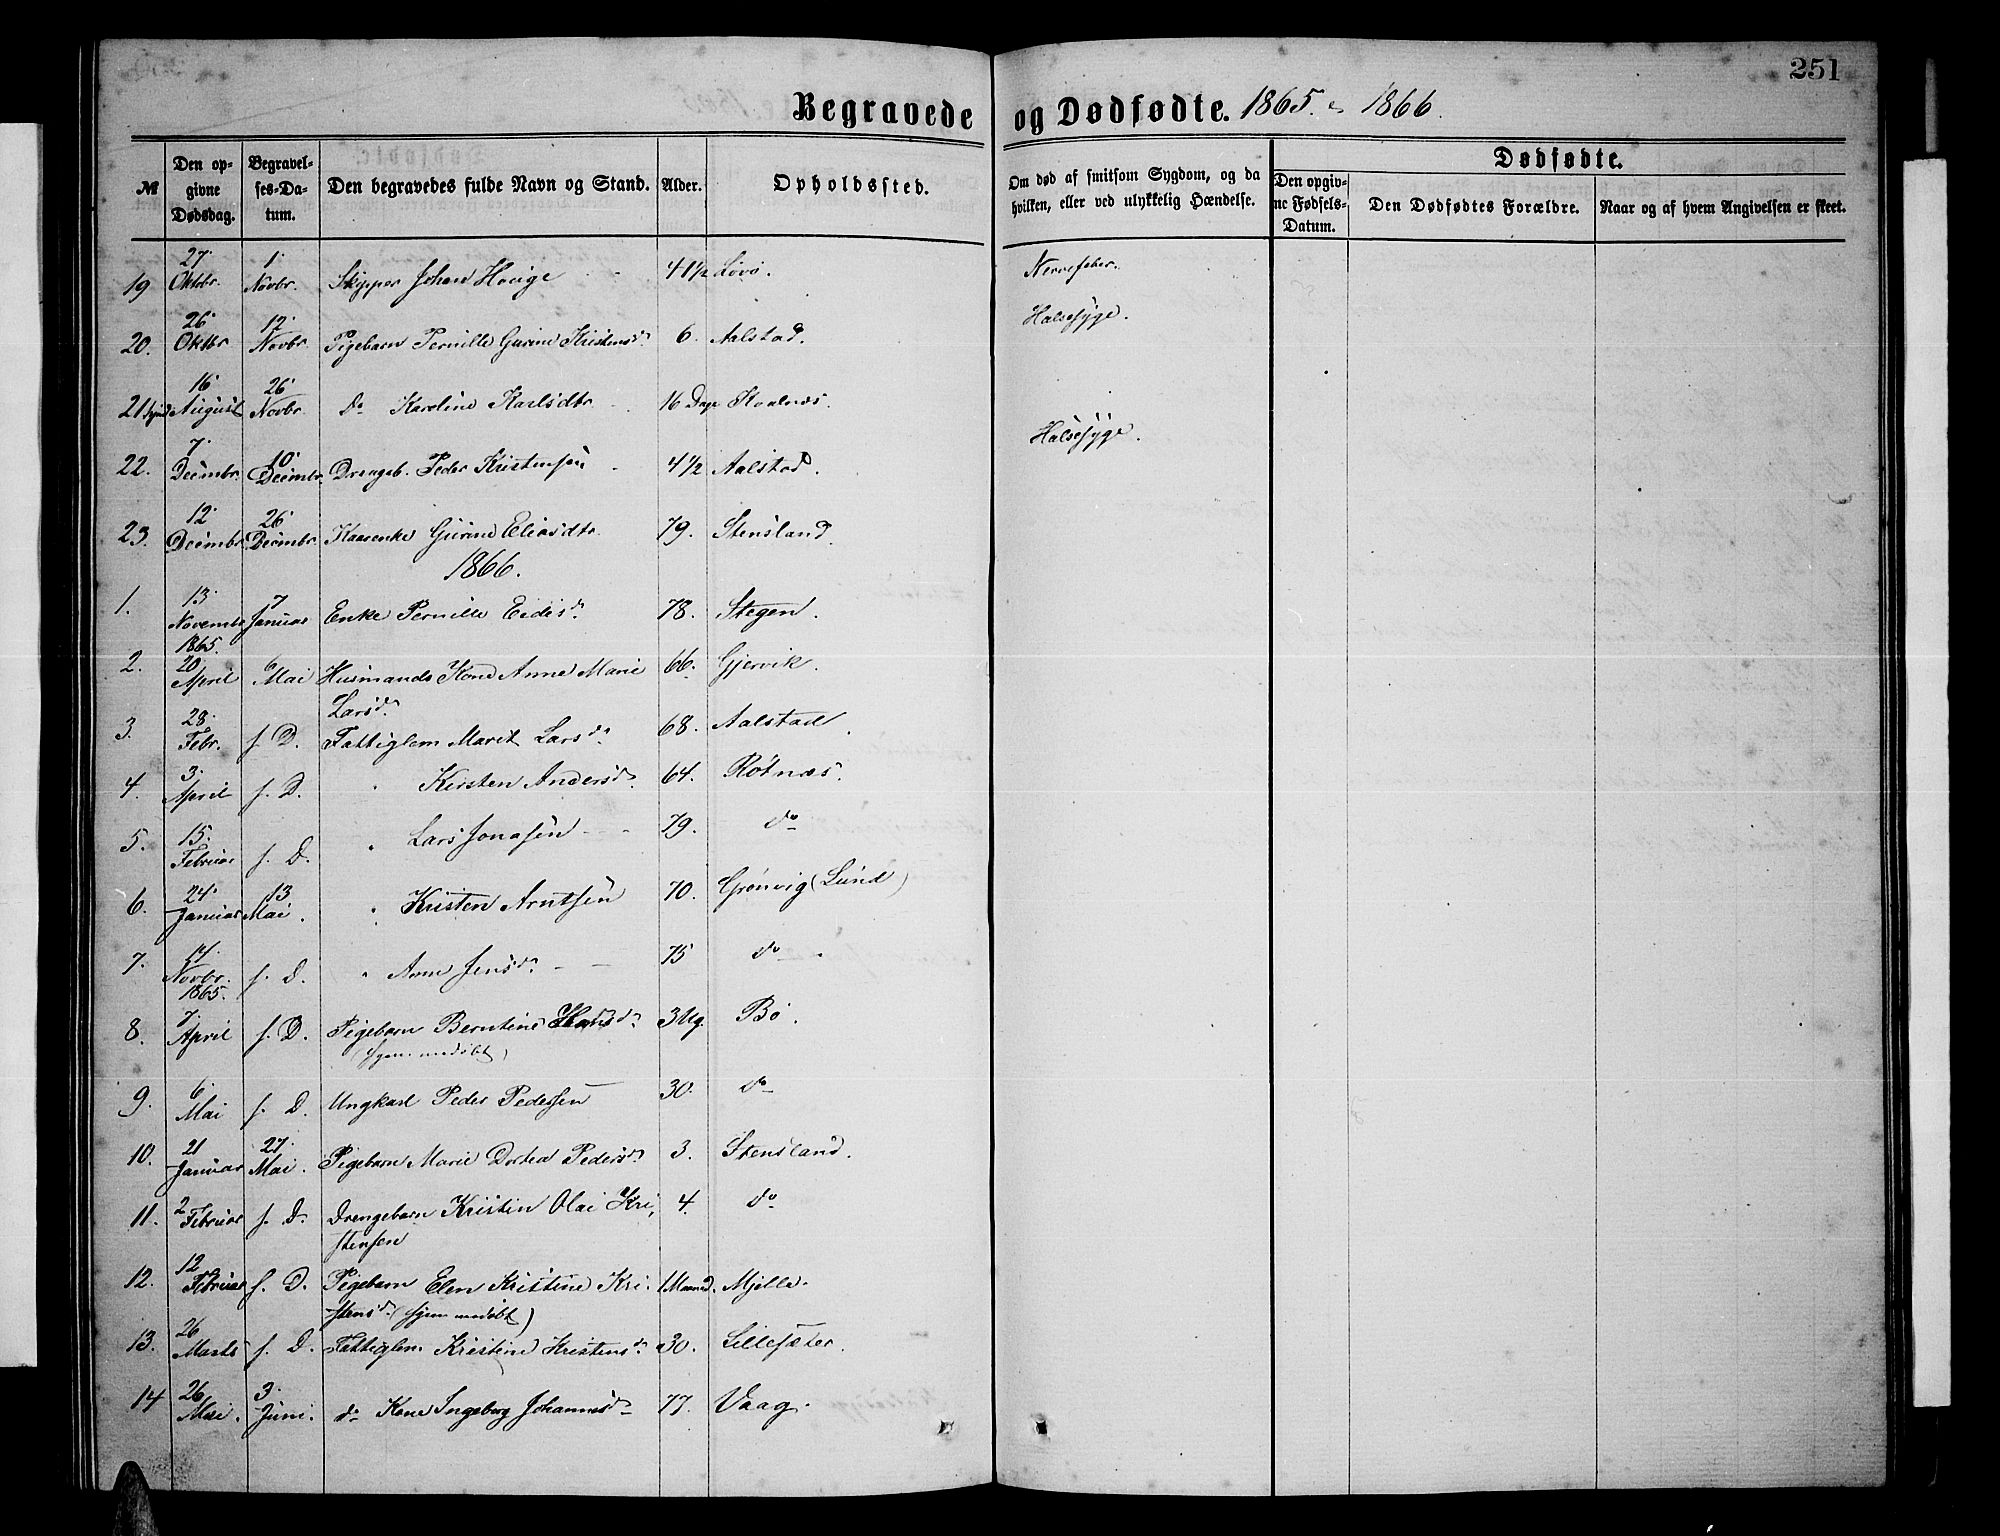 251
Begravede og Dødfødte. 1865 1866.
№ Den opgivne Dødsdag. Begravelses-Datum. Den begravedes fulde Navn og Stand. Alder. Opholdssted. Om død af smitsom Sygdom, og da hvilken, eller ved ulykkelig Hændelse. Dødfødte. Den opgivne Fødsels-Datum. Den Dødfødtes Forældre. Naar og af hvem Angivelsen er skeet.
19 27 Oktbr. 1. Novbr. Skipper Johan Houge 41½ Lövö. Nervefeber.
20. 26. Oktbr 12. Novbr Pigebarn Pernille Gurine Kristensdr 6. Aalstad. Halsesyge.
21 16 August 26 Novbr. do Karoline Karlsdtr 16 Dage Skaalnæs.
22. 7. Decimbr. 10. Decimbr. Drengeb. Peder Kristensen 4½ Aalstad. Halsesyge.
23. 12. Decimbr 26. Decimbr. Kaarenke Gurine Eliasdtr 79. Stensland.
1866.
1. 13. Novembr 1865. 7 Januar Enke Pernille Eidisdr 78. Stegen.
2. 20 April 6 Mai Husmands Kone Anne Marie
Larsdr 66. Gjervik.
3. 28. Febr. s. D. Fattiglem Marit Larsdr 68. Aalstad.
4. 3. April s. D. " Kirsten Andersdr 64. Rötnæs.
5. 15. Februar s. D. " Lars Jonasen 79. do
6. 24. Januar 13 Mai. " Kristen Arntsen 70. Grönvig (Lund)
7. 14. Novbr. 1865. s. D. " Anne Jensdr 75 do
8. 7. April s. D. Pigebarn Berntine Hansdr 3 Ug. Bö.
(hjem̄edöbt)
9. 6. Mai s. D. Ungkarl Peder Pedersen 30. do
10. 21 Januar 27. Mai. Pigebarn Marie Dortea Pedersdr 3. Stensland.
11. 2 Februar s. D. Drengebarn Kristin Olai Kri-
stensen 4. do
12. 12 Februar s. D. Pigebarn Elen Kristine Kri-
stensdr (hjem̄edöbt) 1 Maaned. Mjelle.
13. 26 Marts s. D. Fattiglem Kristine Kristensdr 30. Lillesæter.
14 26 Mai. 3. Juni. do Kone Ingeborg Johannesdr 77. Vaag.